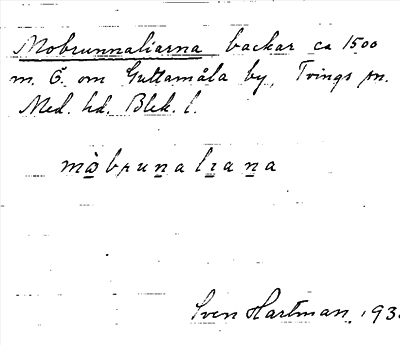 Mobrunnaliarna backar ca 1500
m. Ö. om Guttamåla by, Tvings sn.
Med. hd. Blek. l.
mòbrunaliana
Sven Hartman, 193